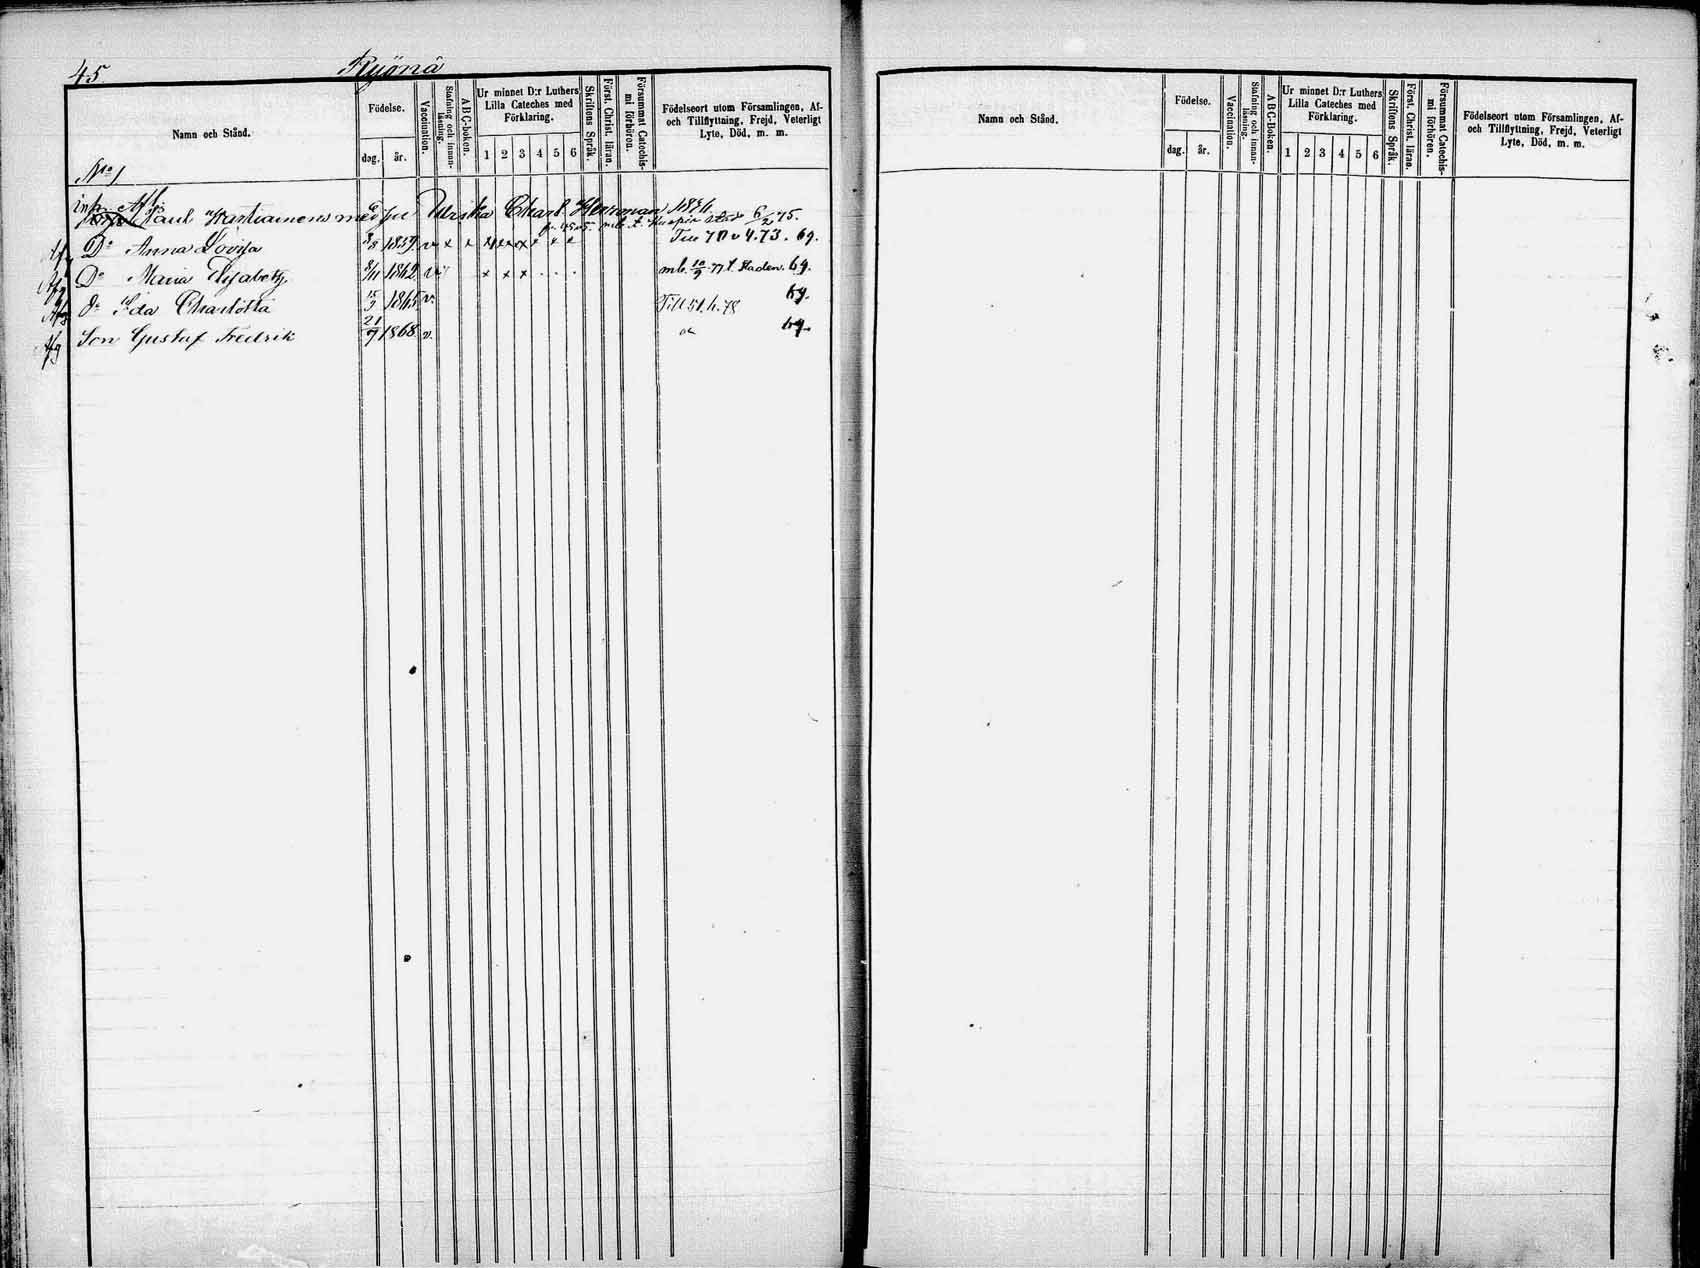 45 Ryönä
Namn och Stånd. Födelse. dag. år. Vaccination. Stafning och innan-läsning. A B C-boken. Ur minnet D:r Luthers Lilla Cateches med Förklaring. 1 2 3 4 5 6 Skriftens Språk. Först. Christ. läran. Försummat Catechis-mi förhören. Födelseort utom Församlingen, Af- och Tillflyttning, Frejd, Veterligt Lyte, Död, m. m.
No 1
inh. Afl:s
Paul Kartiainens med Ulrika Charl. Herrman 1836
mb. t. Kuopio stad 6/2 75.
Af D:o Anna Lovisa 1859 v x x x x x x x x 73. bg.
Afg D:o Maria Elisabeth 8/11 1862 v x x x . . . mb. 10/9 77 t. staden. bg.
Afg D:o Ida Charlotta 15/3 1865 v. Till 51. h. 78 bg.
Afg Son Gustaf Fredrik 21/7 1868 v. bg.
Namn och Stånd. Födelse. dag. år. Vaccination. Stafning och innan-läsning. A B C-boken. Ur minnet D:r Luthers Lilla Cateches med Förklaring. 1 2 3 4 5 6 Skriftens Språk. Först. Christ. läran. Försummat Catechis-mi förhören. Födelseort utom Församlingen, Af- och Tillflyttning, Frejd, Veterligt Lyte, Död, m. m.